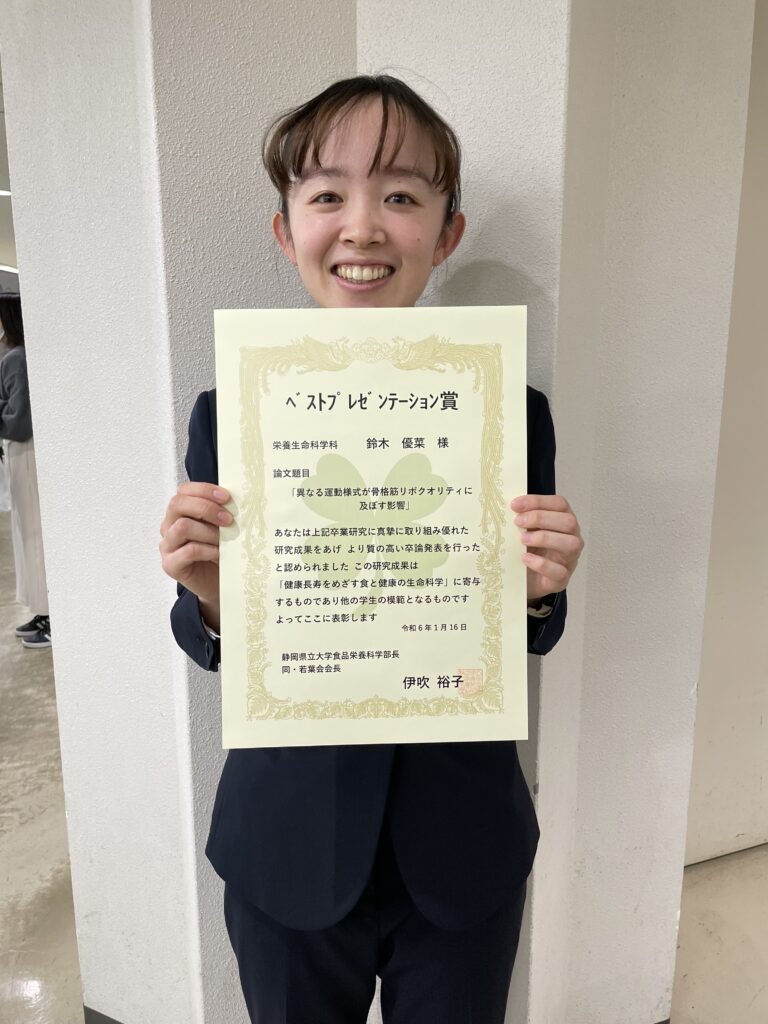 ベストプレゼンテーション賞
栄養生命科学科 鈴木 優菜 様
論文題目
「異なる運動様式が骨格筋リポクオリティに
及ぼす影響」
あなたは上記卒業研究に真摯に取り組み優れた
研究成果をあげ より質の高い卒論発表を行った
と認められました この研究成果は
「健康長寿をめざす食と健康の生命科学」に寄与
するものであり他の学生の模範となるものです
よってここに表彰します
令和6年1月16日
静岡県立大学食品栄養科学部長
同・若葉会会長
伊吹 裕子